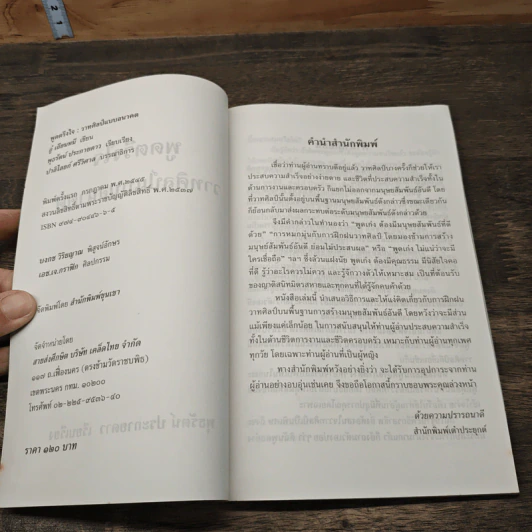 พูดตรึงใจ : วาทศิลป์แบบอนาคต
อู๋ เถียนหมี เขียน
พุธรัตน์ ประกายดาว เรียบเรียง
ปาลิไลยก์ ศรีวิศาล บรรณาธิการ
พิมพ์ครั้งแรก กรกฎาคม พ.ศ.๒๕๔๕
สงวนลิขสิทธิ์ตามพระราชบัญญัติลิขสิทธิ์ พ.ศ.๒๕๓๗
บงกช วิริยญาณ พิสูจน์อักษร
เอช.เจ.กราฟิค ศิลปกรรม
จัดพิมพ์โดย สำนักพิมพ์ขุนเขา
จัดจำหน่ายโดย
สายส่งศึกษิต บริษัท เคล็ดไทย จำกัด
๑๑๗ ถ.เฟื่องนคร (ตรงข้ามวัดราชบพิธ)
เขตพระนคร กทม. ๑๐๒๐๐
โทรศัพท์ ๐๒-๒๒๕-๙๕๓๖-๔๐
ราคา ๑๒๐ บาท
คำนำสำนักพิมพ์
เชื่อว่าท่านผู้อ่านทราบดีอยู่แล้ว วาทศิลป์บางครั้งก็ช่วยให้เรา
ประสบความสำเร็จอย่างง่ายดาย และชีวิตที่ประสบความสำเร็จทั้งใน
ด้านการงานและครอบครัว ก็แยกไม่ออกจากมนุษยสัมพันธ์อันดี โดย
ที่วาทศิลป์นั้นตั้งอยู่บนพื้นฐานมนุษยสัมพันธ์ดังกล่าวซึ่งขณะเดียวกัน
ก็ย้อนกลับมาส่งผลกระทบต่อระดับมนุษยสัมพันธ์ดังกล่าวด้วย
จึงมีคำกล่าวในทำนองว่า “พูดเก่ง ต้องมีมนุษยสัมพันธ์ที่ดี
ด้วย” “การหมกมุ่นกับการฝึกฝนวาทศิลป์ โดยมองข้ามการสร้าง
มนุษย์สัมพันธ์อันดี ย่อมไม่ประสบผล” หรือ “พูดเก่ง ไม่แน่ว่าจะมี
ใครเชื่อถือ” ฯลฯ ซึ่งล้วนแฝงนัย พูดเก่ง ต้องมีคุณธรรม มีนิสัยใจคอ
ที่ดี รู้ว่าอะไรควรไม่ควร และรู้จักวางตัวให้เหมาะสม เป็นที่ต้อนรับ
ของญาติสนิทมิตรสหายและทุกคนที่ได้รู้จักคบค้าด้วย
หนังสือเล่มนี้ นำเสนอวิธีการและให้แง่คิดเกี่ยวกับการฝึกฝน
วาทศิลป์บนพื้นฐานการสร้างมนุษยสัมพันธ์อันดี โดยหวังว่าจะมีส่วน
แม้เพียงแค่เล็กน้อย ในการสนับสนุนให้ท่านผู้อ่านประสบความสำเร็จ
ทั้งในด้านชีวิตการงานและชีวิตครอบครัว เหมาะกับท่านผู้อ่านทุกเพศ
ทุกวัย โดยเฉพาะท่านผู้อ่านที่เป็นผู้หญิง
ทางสำนักพิมพ์หวังอย่างยิ่งว่า จะได้รับการอุปการะจากท่าน
ผู้อ่านอย่างอบอุ่นเช่นเคย จึงขอถือโอกาสนี้กราบขอบพระคุณล่วงหน้า
ด้วยความปรารถนาดี
สำนักพิมพ์เต๋าประยุกต์